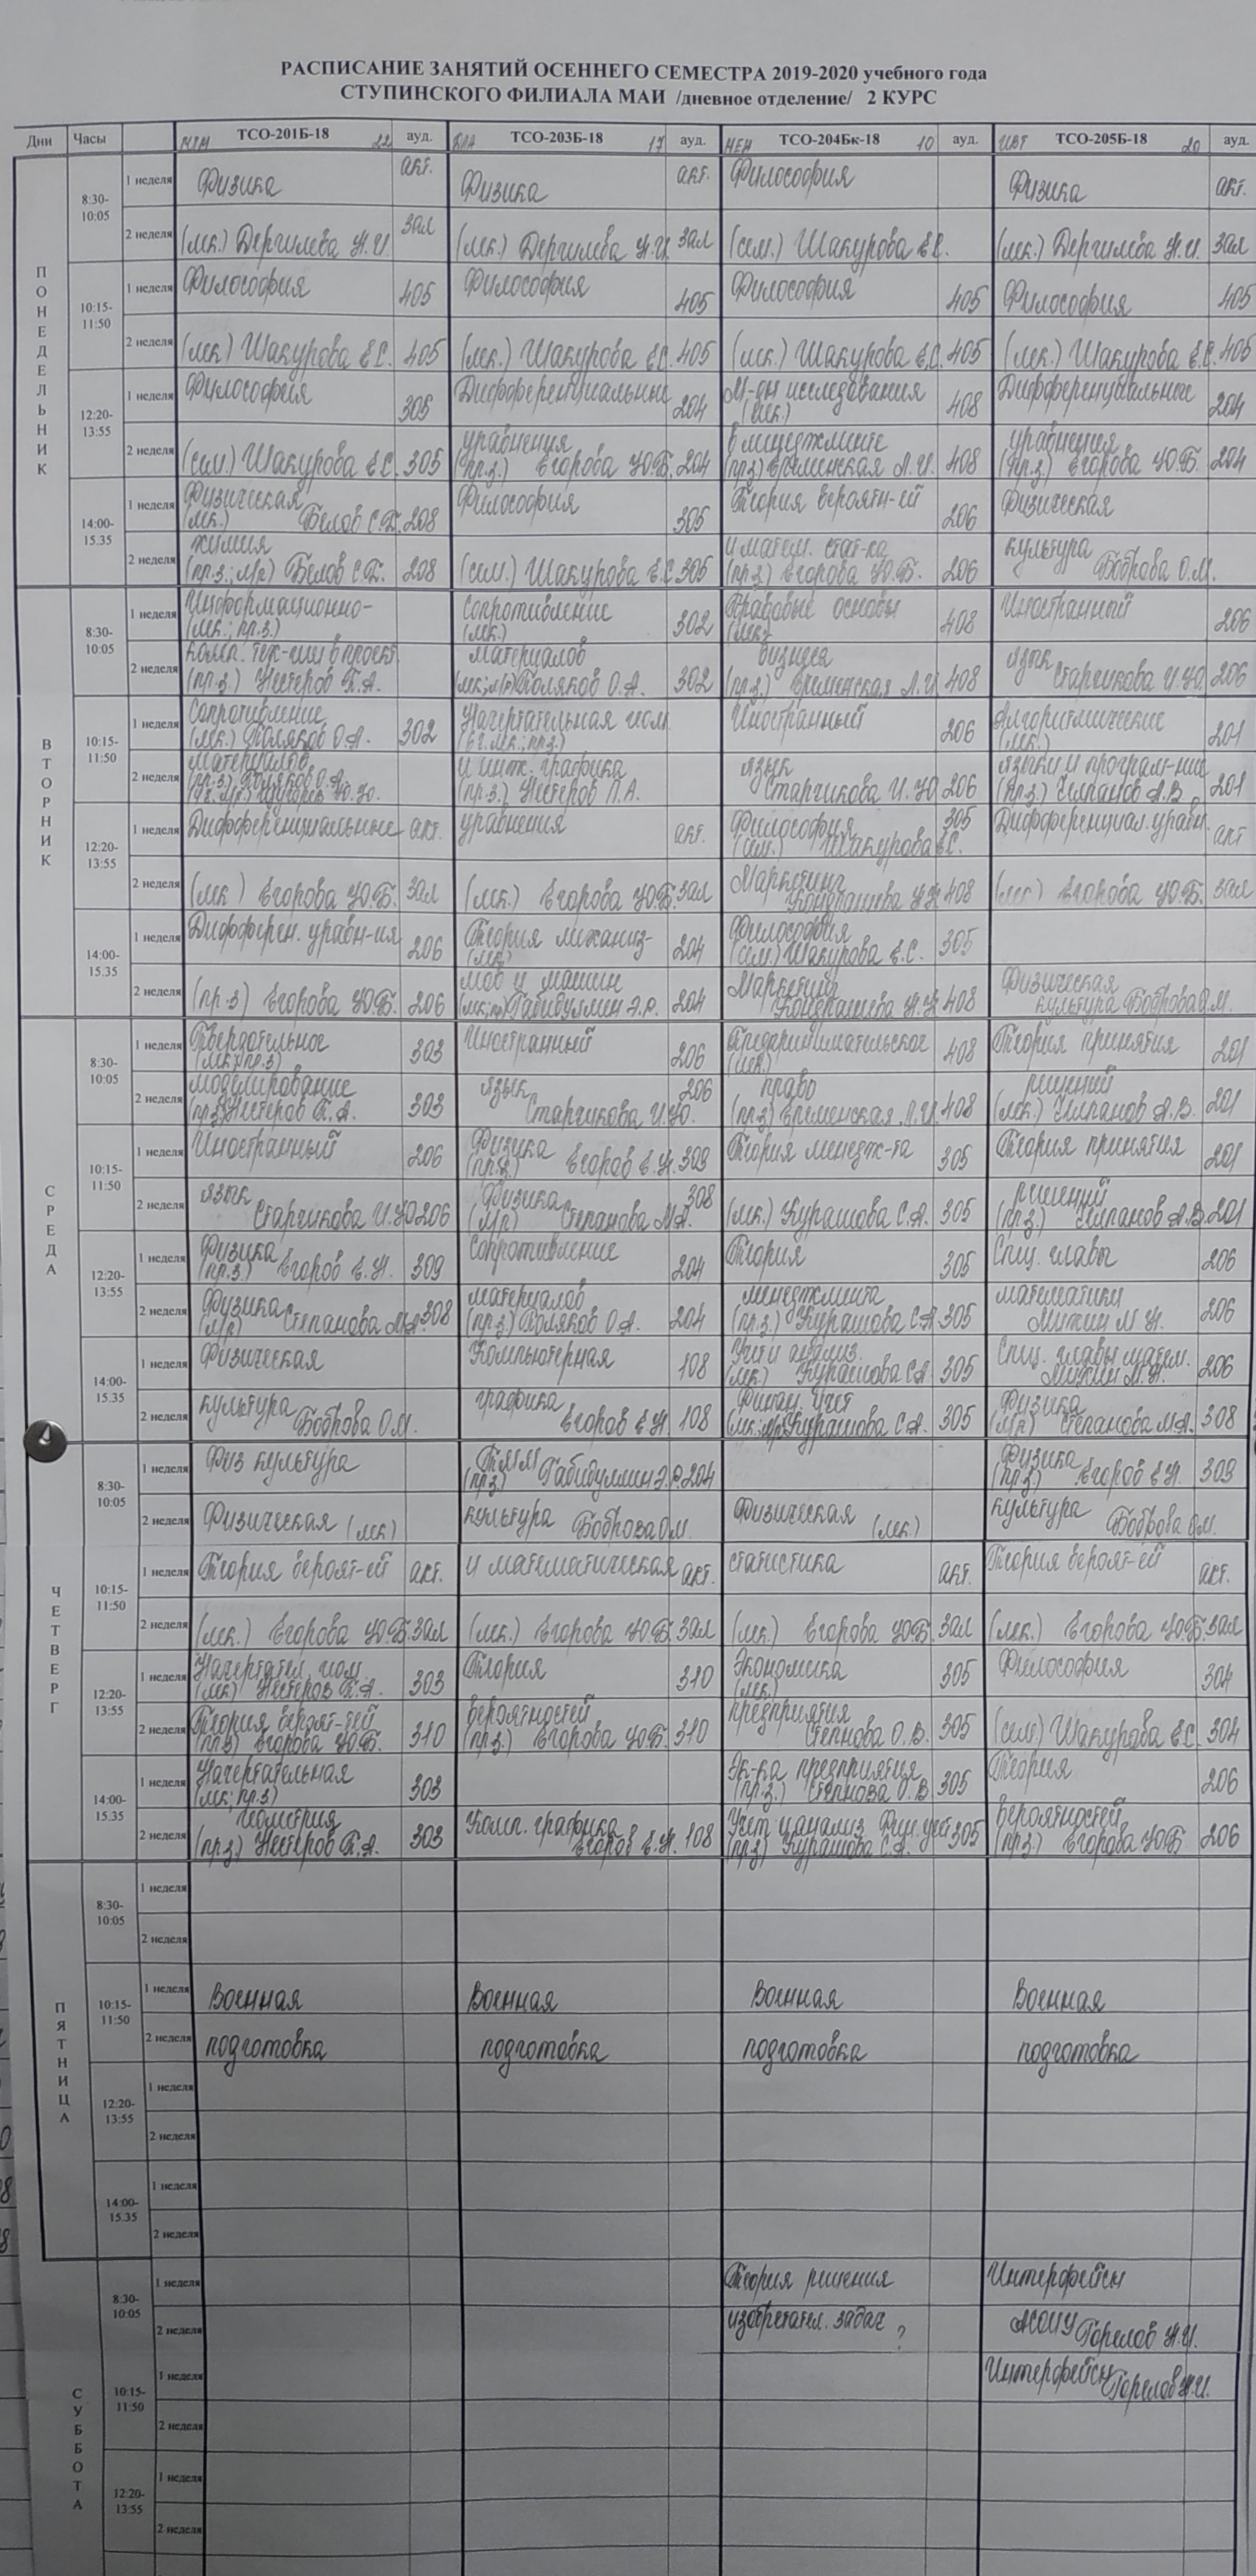 РАСПИСАНИЕ ЗАНЯТИЙ ОСЕННЕГО СЕМЕСТРА 2019-2020 учебного года
СТУПИНСКОГО ФИЛИАЛА МАИ /дневное отделение/ 2 КУРС
Дни Часы ТСО-201Б-18 22 ауд. ТСО-203Б-18 17 ауд. ТСО-204Бк-18 10 ауд. ТСО-205Б-18 20 ауд.
ПОНЕДЕЛЬНИК
8:30-10:05
1 неделя Физика акт. Физика акт. Философия Физика акт.
2 неделя (лек.) зал (лек.) зал (сем.) Шакурова Е.С. (лек.) зал
10:15-11:50
1 неделя Философия 405 Философия 405 Философия 405 Философия 405
2 неделя (лек.) Шакурова Е.С. 405 (лек.) Шакурова Е.С. 405 (лек.) Шакурова Е.С. 405 (лек.) Шакурова Е.С. 405
12:20-13:55
1 неделя Философия 305 Дифференциальные 204 М-ды исследования (лек.) 408 Дифференциальные 204
2 неделя (сем.) Шакурова Е.С. 305 уравнения (пр.з.) Егорова Ю.Б. 204 в менеджменте (пр.з) Еременская Л.И. 408 уравнения (пр.з.) Егорова Ю.Б. 204
14:00-15.35
1 неделя Физическая (лек.) Белов С.Г. 208 Философия 305 Теория вероятн-ей 206 Физическая
2 неделя химия (пр.з.; л/р) Белов С.Г. 208 (сем.) Шакурова Е.С. 305 и матем. стат-ка (пр.з.) Егорова Ю.Б. 206 культура Боброва О.М.
ВТОРНИК
8:30-10:05
1 неделя Информационно- (лек.; пр.з.) Сопротивление (лек.) 302 Правовые основы (лек) 408 Иностранный 206
2 неделя (пр.з.) Нестеров П.А. материалов (лк; л/р) Поляков О.А. 302 бизнеса (пр.з.) Еременская Л.И. 408 язык Старчикова И.Ю. 206
10:15-11:50
1 неделя Сопротивление (лек.) Поляков О.А. 302 Начертательная геом. Иностранный 206 Алгоритмические (лек.) 201
2 неделя материалов (пр.з.) Поляков О.А. и инж. графика (пр.з.) Нестеров П.А. язык Старчикова И.Ю. 206 языки и програм-ние (пр.з) 201
12:20-13:55
1 неделя Дифференциальные акт. уравнения акт. Философия 305 (сем.) Шакурова Е.С. Дифференциал. уравн. акт
2 неделя (лек) Егорова Ю.Б. зал (лек.) Егорова Ю.Б. зал Маркетинг Кондрашева Н.Н. 408 (лек) Егорова Ю.Б. зал
14:00-15.35
1 неделя Дифферен. уравн-ия 206 Теория механиз- (лек) 204 Философия (сем.) Шакурова Е.С. 305
2 неделя (пр.з) Егорова Ю.Б. 206 мов и машин Габидуллин Э.Р. 204 Маркетинг Кондрашева Н.Н. 408 Физическая культура Боброва О.М.
СРЕДА
8:30-10:05
1 неделя Твердотельное (лек; пр.з) 303 Иностранный 206 Предпринимательское (лек.) 408 Теория принятия 201
2 неделя моделирование (пр.з) Нестеров П.А. 303 язык 206 Старчикова И.Ю. право (пр.з) Еременская Л.И. 408 решений (лек.) 201
10:15-11:50
1 неделя Иностранный 206 Физика (пр.з.) Егоров Е.Н. 309 Теория менедж-та 305 Теория принятия 201
2 неделя язык Старчикова И.Ю. 206 Физика (л/р) Степанова М.А. 308 (лек.) Курашова С.А. 305 решений (пр.з.) 201
12:20-13:55
1 неделя Физика (пр.з.) Егоров Е.Н. 309 Сопротивление 204 Теория 305 Спец. главы 206
2 неделя Физика (л/р) Степанова М.А. 308 материалов (пр.з) Поляков О.А. 204 менеджмента (пр.з.) Курашова С.А 305 математики 206
14:00-15.35
1 неделя Физическая Компьютерная 108 Учет и анализ. (лек.) Курашова С.А. 305 Спец. главы матем. 206
2 неделя культура Боброва О.М. графика Егоров Е.Н. 108 Финан. учет Курашова С.А. 305 Физика (л/р) Степанова М.А. 308
ЧЕТВЕРГ
8:30-10:05
1 неделя Физ культура ТММ (пр.з) Габидуллин Э.Р. 204 Физика (пр.з) Егоров Е.Н. 309
2 неделя Физическая (лек) культура Боброва О.М. Физическая (лек) культура Боброва О.М.
10:15-11:50
1 неделя Теория вероят-ей акт. и математическая акт. статистика акт. Теория вероят-ей акт.
2 неделя (лек.) Егорова Ю.Б. зал (лек.) Егорова Ю.Б. зал (лек.) Егорова Ю.Б. зал (лек.) Егорова Ю.Б. зал
12:20-13:55
1 неделя Начертател. геом. (лек) Нестеров П.А. 303 Теория 310 Экономика (лек.) 305 Философия 304
2 неделя Теория вероят-тей (пр.з) Егорова Ю.Б. 310 вероятностей (пр.з.) Егорова Ю.Б. 310 предприятия Степнова О.В. 305 (сем) Шакурова Е.С. 304
14:00-15.35
1 неделя Начертательная (лек; пр.з) 303 Эк-ка предприятия (пр.з.) Степнова О.В 305 Теория 206
2 неделя геометрия (пр.з) Нестеров П.А. 303 Комп. графика Егоров Е.Н. 108 Учет и анализ. Фин. учет 305 (пр.з) Курашова С.А. вероятностей (пр.з.) Егорова Ю.Б 206
ПЯТНИЦА
8:30-10:05
1 неделя
2 неделя
10:15-11:50
1 неделя Военная Военная Военная Военная
2 неделя подготовка подготовка подготовка подготовка
12:20-13:55
1 неделя
2 неделя
14:00-15.35
1 неделя
2 неделя
СУББОТА
8:30-10:05
1 неделя Теория решения Интерфейсы
2 неделя изобретател. задач ? АСОИУ Горелов
10:15-11:50
1 неделя Интерфейсы Горелов
2 неделя
12:20-13:55
1 неделя
2 неделя